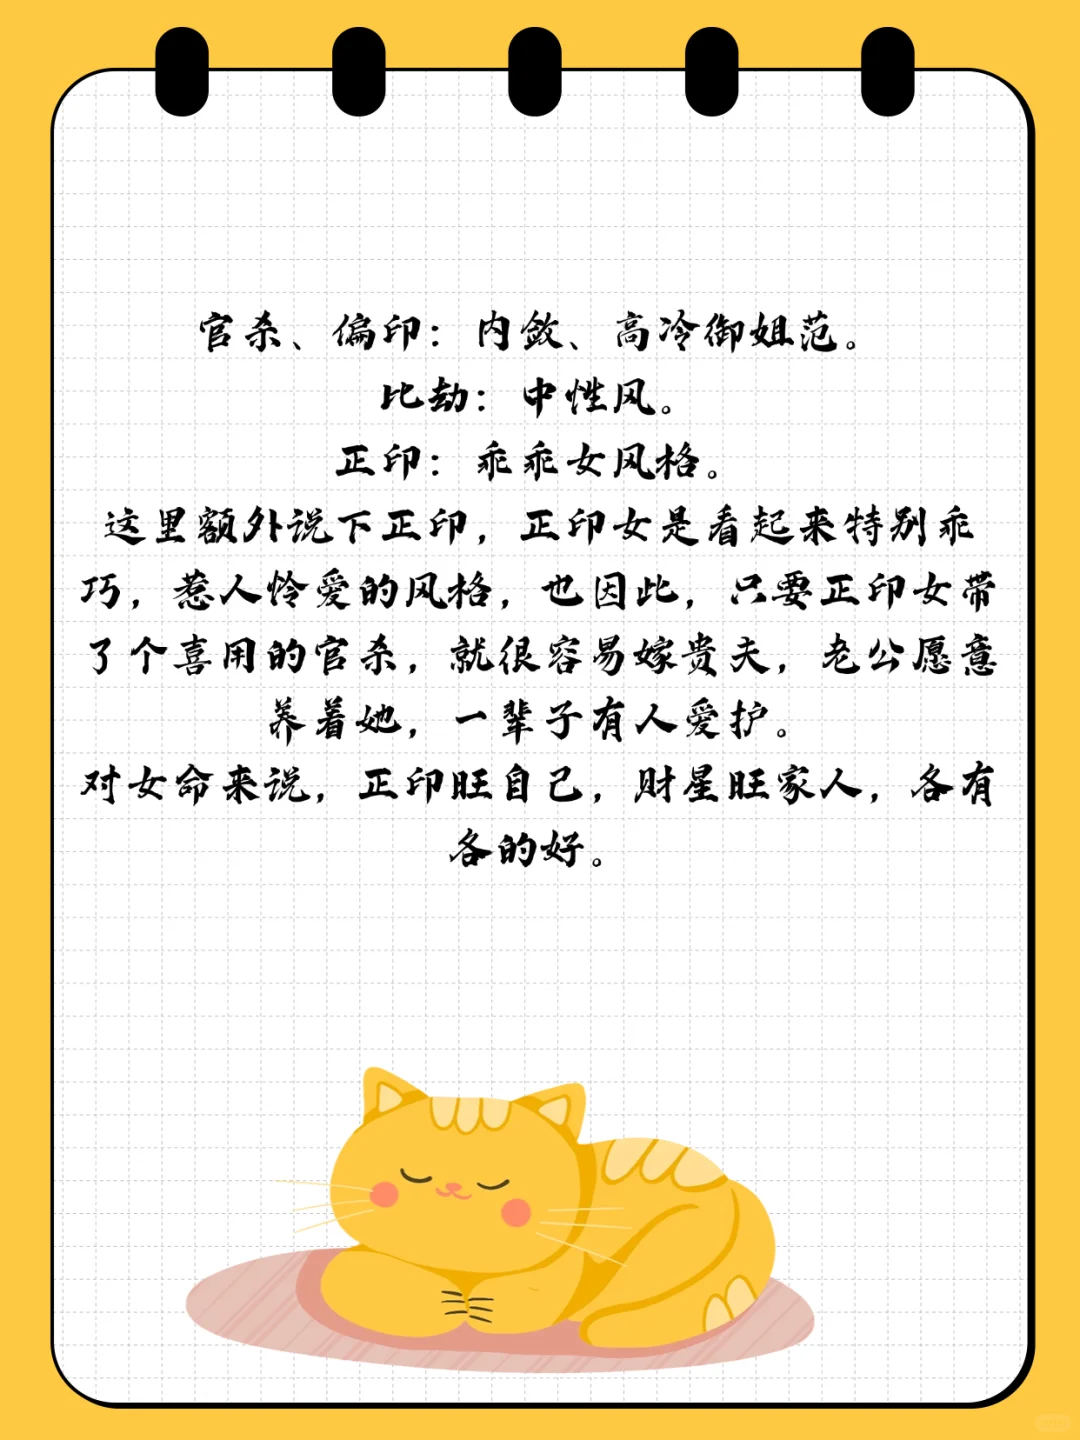 官杀、偏印：内敛、高冷御姐范。
比劫：中性风。
正印：乖乖女风格。
这里额外说下正印，正印女是看起来特别乖
巧，惹人怜爱的风格，也因此，只要正印女带
了个喜用的官杀，就很容易嫁贵夫，老公愿意
养着她，一辈子有人爱护。
对女命来说，正印旺自己，财星旺家人，各有
各的好。